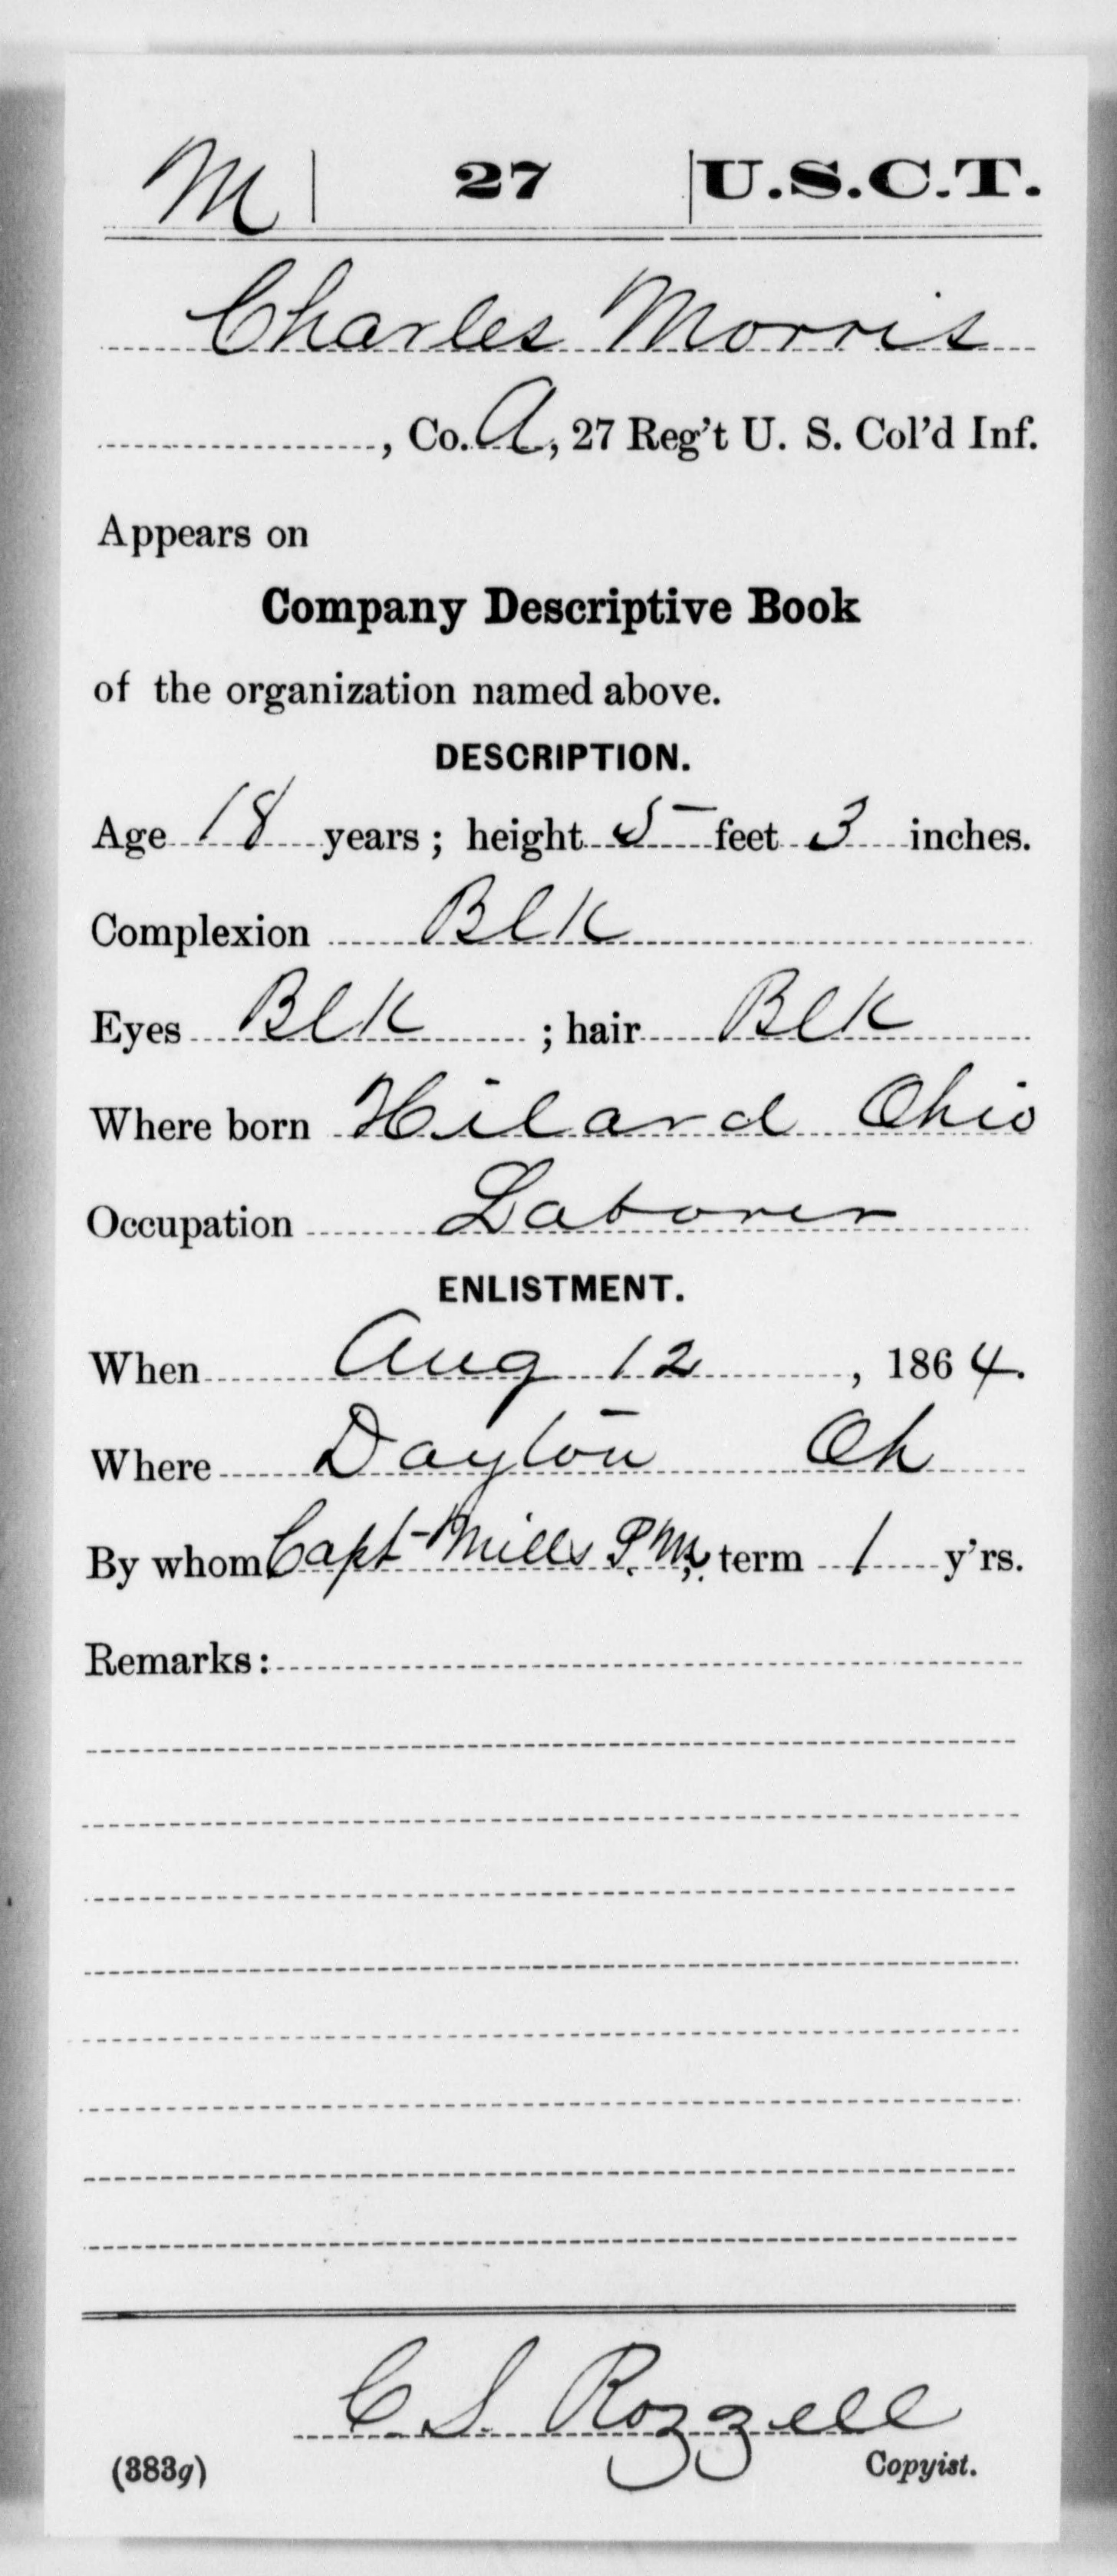 M | 27 | U.S.C.T.
Charles Morris
, Co. A, 27 Reg't U. S. Col'd Inf.
Appears on
Company Descriptive Book
of the organization named above.
DESCRIPTION.
Age 18 years; height 5 feet 3 inches.
Complexion Blk
Eyes Blk ; hair Blk
Where born Hilard Ohio
Occupation Laborer
ENLISTMENT.
When Aug 12, 1864.
Where Dayton Oh
By whom Capt Mills P.M., term 1 y'rs.
Remarks:
C S Rozzell
(383g) Copyist.